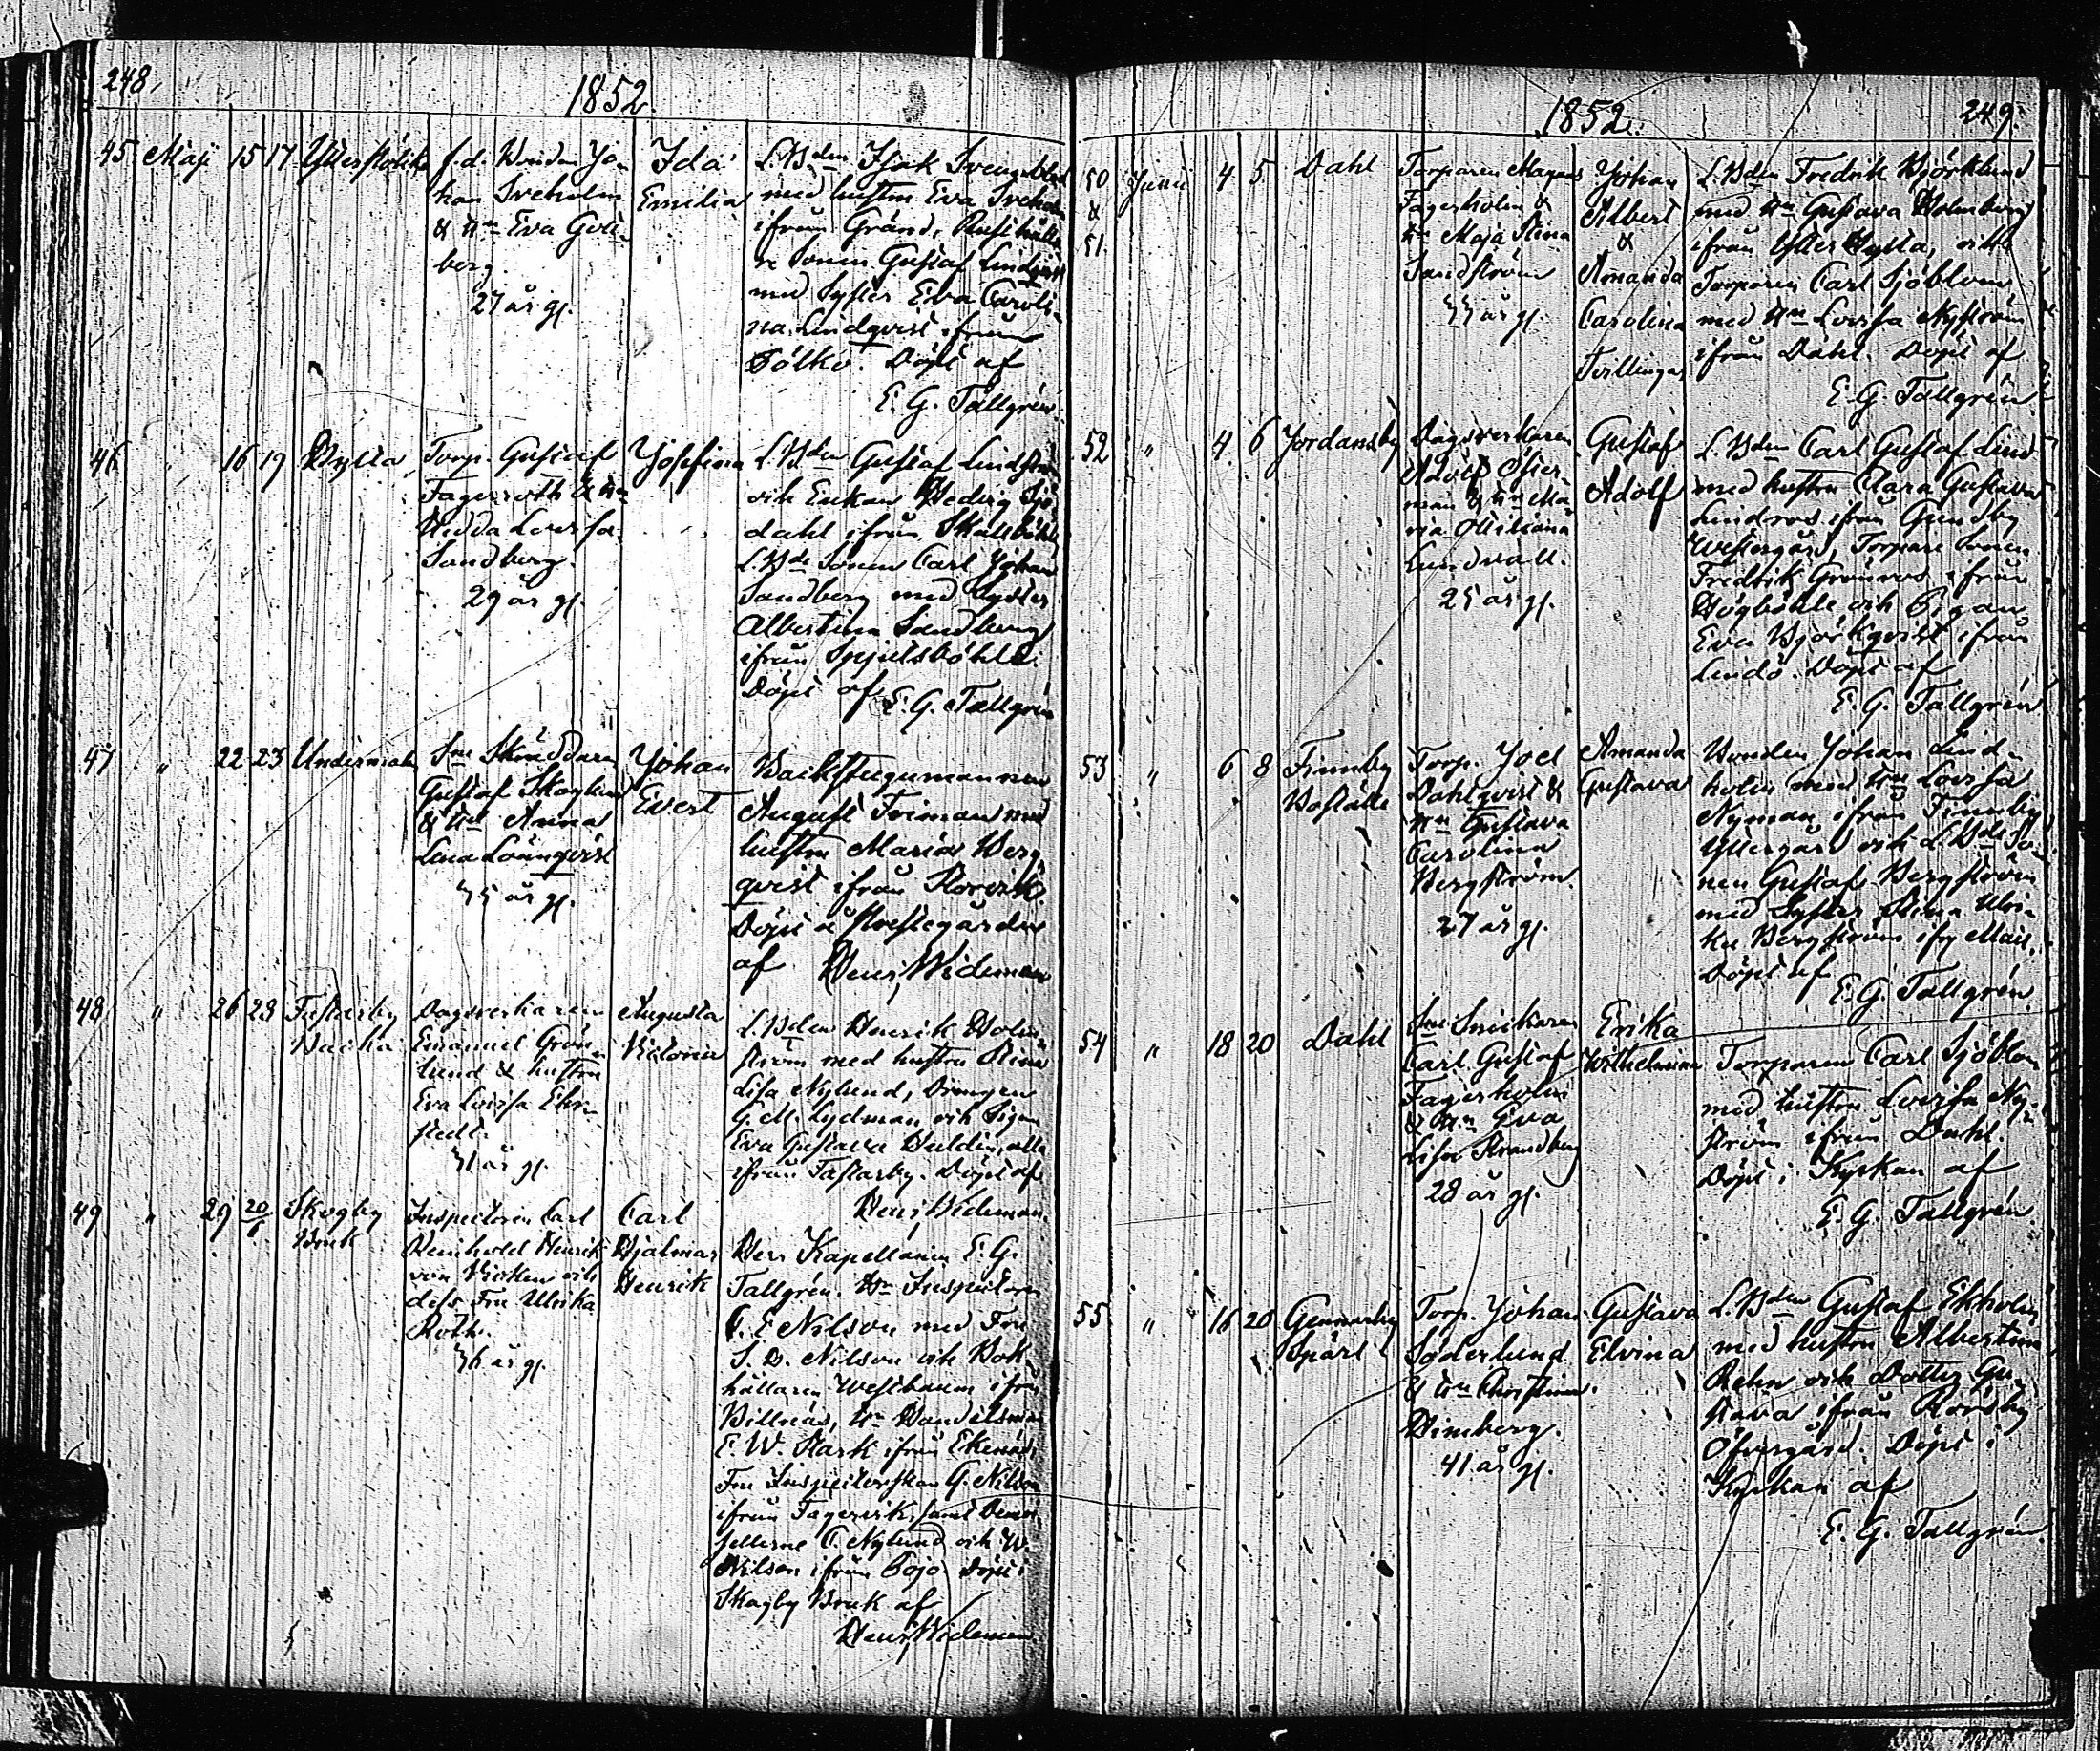 248.
1852.
45 Maji 15 17
f.d. Bonden Jo-
han Sveholm
& Hn Eva Grön-
berg.
27 år g.
Ida
Emilia
L.Bden Isak
med hustru Eva Sveholm
ifrån Gränd,
Sonen Gustaf Lindqvist
med Syster Eva Caroli-
na Lindqvist ifrån
Döpt af
E. G. Tallgrén.
46 " 16 19
Torp. Gustaf
Fagerroth & Hn
Hedda Lovisa
Sandberg.
29 år g.
Josefina
L.Bden Gustaf
och Enkan Hedvig
dahl ifrån
L.Bde Sonen Carl Johan
Sandberg med Syster
Albertina Sandberg
ifrån Spjutsböhle.
Döpt af E. G. Tallgrén
47 " 22 23
Skräddaren
Gustaf Skoglund
& Hn Anna
Lena Lönnqvist
35 år g.
Johan
Evert
Backstugumannen
August Friman med
hustru Maria Berg-
qvist ifrån
Döpt å Prestegården
af Henr. Wideman
48 " 26 28 Fastarby
Backa
Dagsverkaren
Emanuel Grön-
lund & hustru
Eva Lovisa Ehr-
stedt.
31 år g.
Augusta
Victoria
L.Bden Henrik Holm-
ström med hustru Stina
Lisa Nylund, Drengen
G. M. Lydman och Pigan
Eva Gustava Huldin, alla
ifrån Fastarby. Döpt af
Henr. Wideman.
49 " 29 20/6 Skogby
Bruk
Inspectoren Carl
Reinhold Henrik
von Vicken och
dess Fru Ulrika
Roth.
36 år g.
Carl
Hjalmar
Henrik
Herr Kapellanen E. G.
Tallgrén. Hr Inspectoren
C. E. Nilson med Fru
S. D. Nilson och Bok-
hållaren Westbaum ifrån
Billnäs, Hr Handelsman
E. W. Stark ifrån Ekenäs,
Fru Inspectorskan G. Nilson
ifrån Fagervik, samt Demoi-
sellerne C. Nylund och W.
Nilson ifrån Pojo. Döpt i
Skogby Bruk af
Henr. Wideman
1852.
249.
50 Junii 4 5 Dahl
&
51.
Torparen Magnus
Fagerholm &
Hn Maja Stina
Sandström
33 år g.
Johan
Albert
&
Amanda
Carolina
Tvillingar
L.Bden Fredrik Björklund
med Hn Gustava Holmberg
ifrån Ytter Bylla, och
Torparen Carl Sjöblom
med Hn Lovisa Nyström
ifrån Dahl. Döpt af
E. G. Tallgrén
52 " 4 6 Jordansby
Dagsverkaren
Adolf Öster-
man & Hn Ma-
ria Christiana
Lundvall.
25 år g.
Gustaf
Adolf
L.Bden Carl Gustaf Lind
med hustru Clara Gustava
Lindros ifrån Gundby
Westergård, Torpare Sonen
Fredrik Grönros ifrån
Högböhle och Pigan
Eva Björkqvist ifrån
Lindö. Döpt af
E. G. Tallgrén
53 " 6 8 Finnby
Boställe
Torp. Joel
Dahlqvist &
Hn Gustava
Carolina
Bergström.
27 år g.
Amanda
Gustava
Bonden Johan Lind-
holm med Hn Lovisa
Nyman ifrån Finnby
Yttergård och L.Bde So-
nen Gustaf Bergström
med Syster Stina Ulri-
ka Bergström ifr
Döpt af
E. G. Tallgrén
54 " 18 20 Dahl
Snickaren
Carl Gustaf
Fagerholm
& Hn Eva
Lisa Strandberg
28 år g.
Erika
Wilhelmina
Torparen Carl Sjöblom
med hustru Lovisa Ny-
ström ifrån Dahl.
Döpt i Kyrkan af
E. G. Tallgrén
55 " 16 20 Gennarby
Torp. Johan
Söderlund
& Hn Christina
Himberg.
41 år g.
Gustava
Elvina
L.Bden Gustaf Ekholm
med hustru Albertina
Rehn och Dotter Gu-
stava ifrån
Öfvergård. Döpt i
Kyrkan af
E. G. Tallgrén